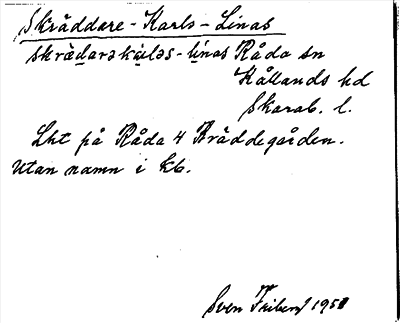 Skräddare-Karls-Linas
skrädarəkàləs-linas Råda sn
Kållands hd
Skarab. l.
Lht på Råda 4 Kräddegården.
Utan namn i kb.
Sven Friberg 1950